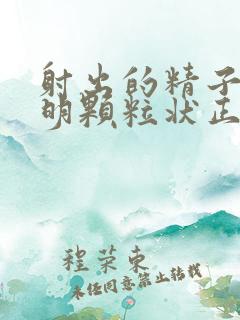 射出的精子
明顆粒状正
程荣东
未经同意禁止转载